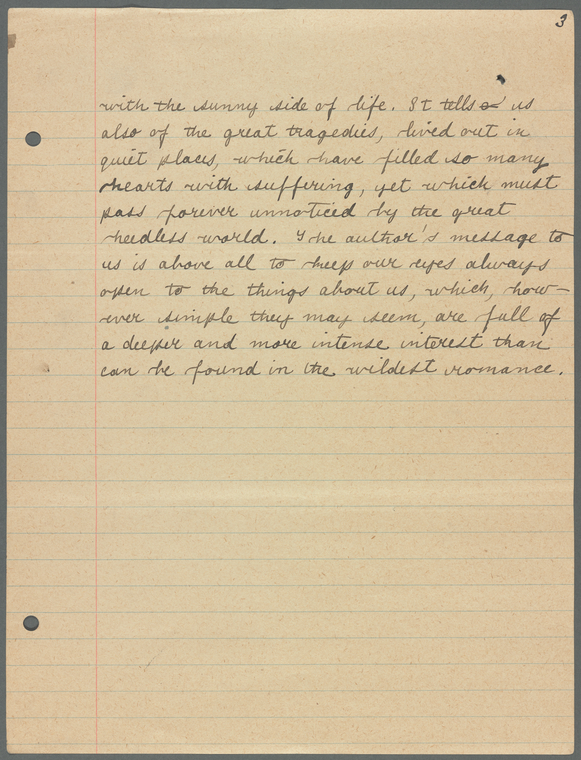 3
with the sunny side of life. It tells us
also of the great tragedies, lived out in
quiet places, which have filled so many
hearts with suffering, yet which must
pass forever unnoticed by the great
heedless world. The author's message to
us is above all to keep our eyes always
open to the things about us, which, how-
ever simple they may seem, are full of
a deeper and more intense interest than
can be found in the wildest romance.